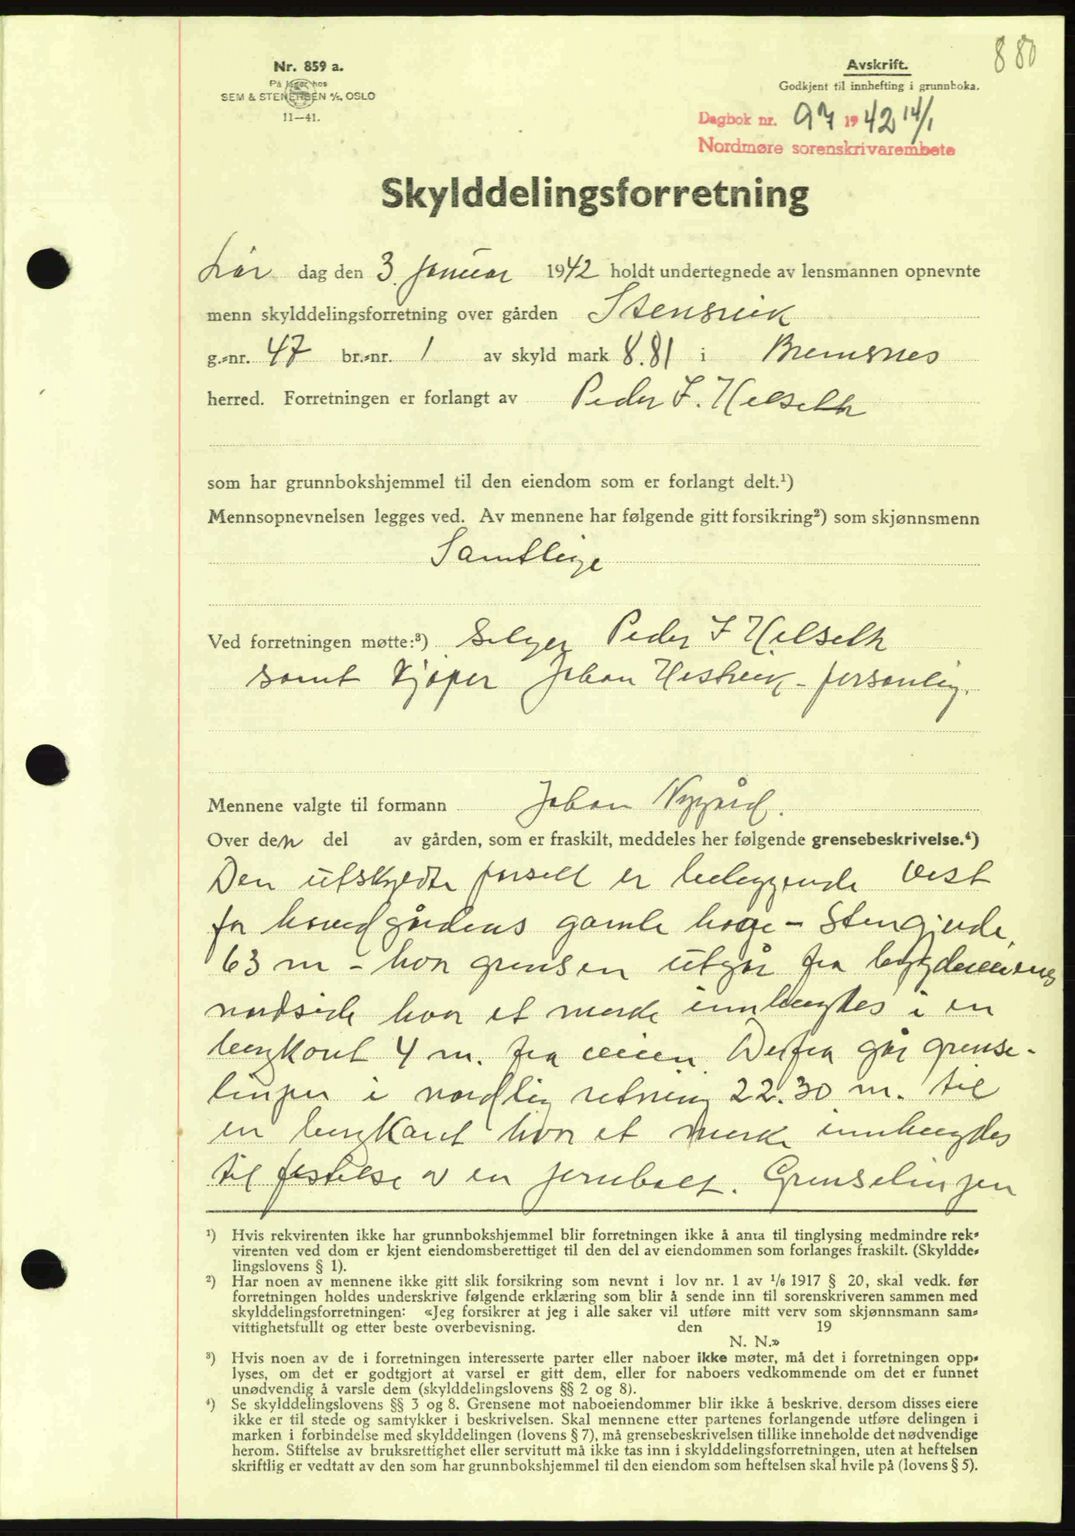 880
Nr. 859 a.
På lager hos
SEM & STENERSEN A/S, OSLO
11—41.
Avskrift.
Godkjent til innhefting i grunnboka.
Dagbok nr. 97 1942 14/1
Nordmøre sorenskrivarembete
Skylddelingsforretning
Lør dag den 3. januar 1942 holdt undertegnede av lensmannen opnevnte
menn skylddelingsforretning over gården Stensvik
g.-nr. 47 br.-nr. 1 av skyld mark 8.81 i Bremsnes
herred. Forretningen er forlangt av Peder I. Helseth
som har grunnbokshjemmel til den eiendom som er forlangt delt.¹)
Mennsopnevnelsen legges ved. Av mennene har følgende gitt forsikring²) som skjønnsmenn
Samtlige
Ved forretningen møtte:³) Selger Peder I Helseth
samt kjøper Johan Hestvik - personlig.
Mennene valgte til formann Johan Nygård.
Over den del av gården, som er fraskilt, meddeles her følgende grensebeskrivelse.⁴)
Den utskyldte parsell er beliggende vest
for hovedgårdens gamle hage - Stengjerde,
63 m - hvor grensen utgår fra bygdeveiens
nordside hvor et merke innhugges i en
bergkant 4 m. fra veien. Derfra går grense-
linjen i nordlig retning 22.30 m. til
en bergkant hvor et merke innhugges
til festelse av en jernbolt. Grenselinjen
¹) Hvis rekvirenten ikke har grunnbokshjemmel blir forretningen ikke å anta til tinglysing medmindre rek-
virenten ved dom er kjent eiendomsberettiget til den del av eiendommen som forlanges fraskilt. (Skyldde-
lingslovens § 1).
²) Har noen av mennene ikke gitt slik forsikring som nevnt i lov nr. 1 av 1/6 1917 § 20, skal vedk. før
forretningen holdes underskrive følgende erklæring som blir å sende inn til sorenskriveren sammen med
skylddelingsforretningen: «Jeg forsikrer at jeg i alle saker vil utføre mitt verv som skjønnsmann sam-
vittighetsfullt og etter beste overbevisning. den 19
N. N.»
³) Hvis noen av de i forretningen interesserte parter eller naboer ikke møter, må det i forretningen opp-
lyses, om det er godtgjort at varsel er gitt dem, eller for naboers vedkommende om det er funnet
unødvendig å varsle dem (skylddelingslovens §§ 2 og 8).
⁴) Se skylddelingslovens §§ 3 og 8. Grensene mot naboeiendommer blir ikke å beskrive, dersom disses eiere
ikke er til stede og samtykker i beskrivelsen. Skal mennene etter partenes forlangende utføre delingen i
marken i forbindelse med skylddelingen (lovens § 7), må grensebeskrivelsen tillike inneholde det nødvendige
herom. Stiftelse av bruksrettighet eller servitutt må ikke tas inn i skylddelingsforretningen, uten at heftelsen
skriftlig er vedtatt av den som har grunnbokshjemmel til den eiendom som heftelsen skal hvile på (lovens § 5).